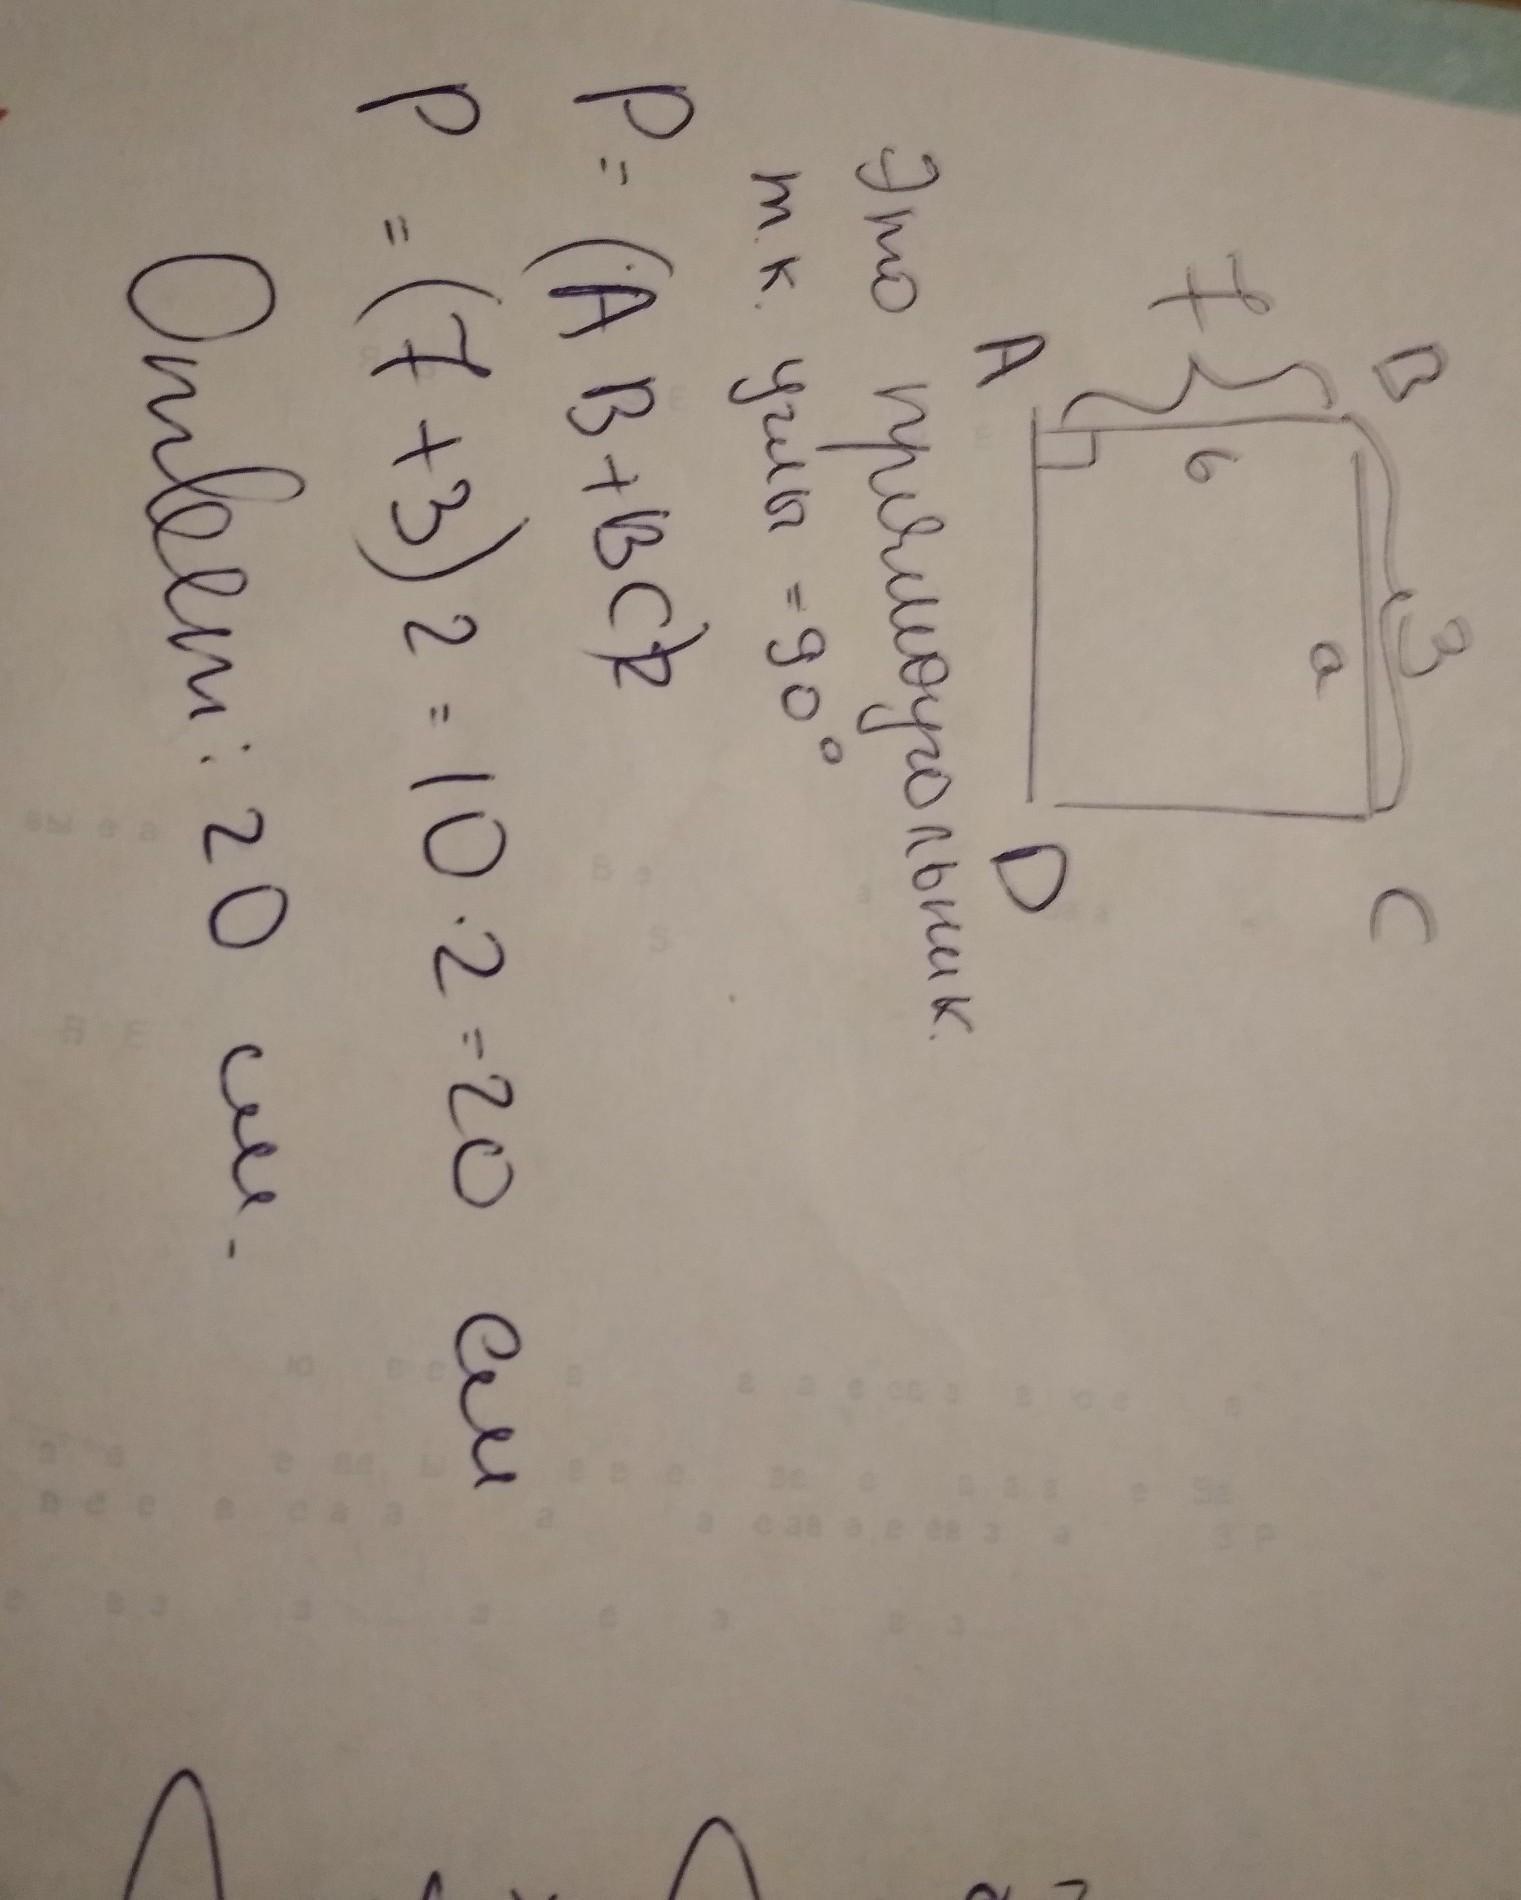 B 3 C
a
7 б
A D
Это прямоугольник.
т.к. углы = 90°
P = (AB+BC)2
P = (7+3)2 = 10·2=20 см
Ответ: 20 см.